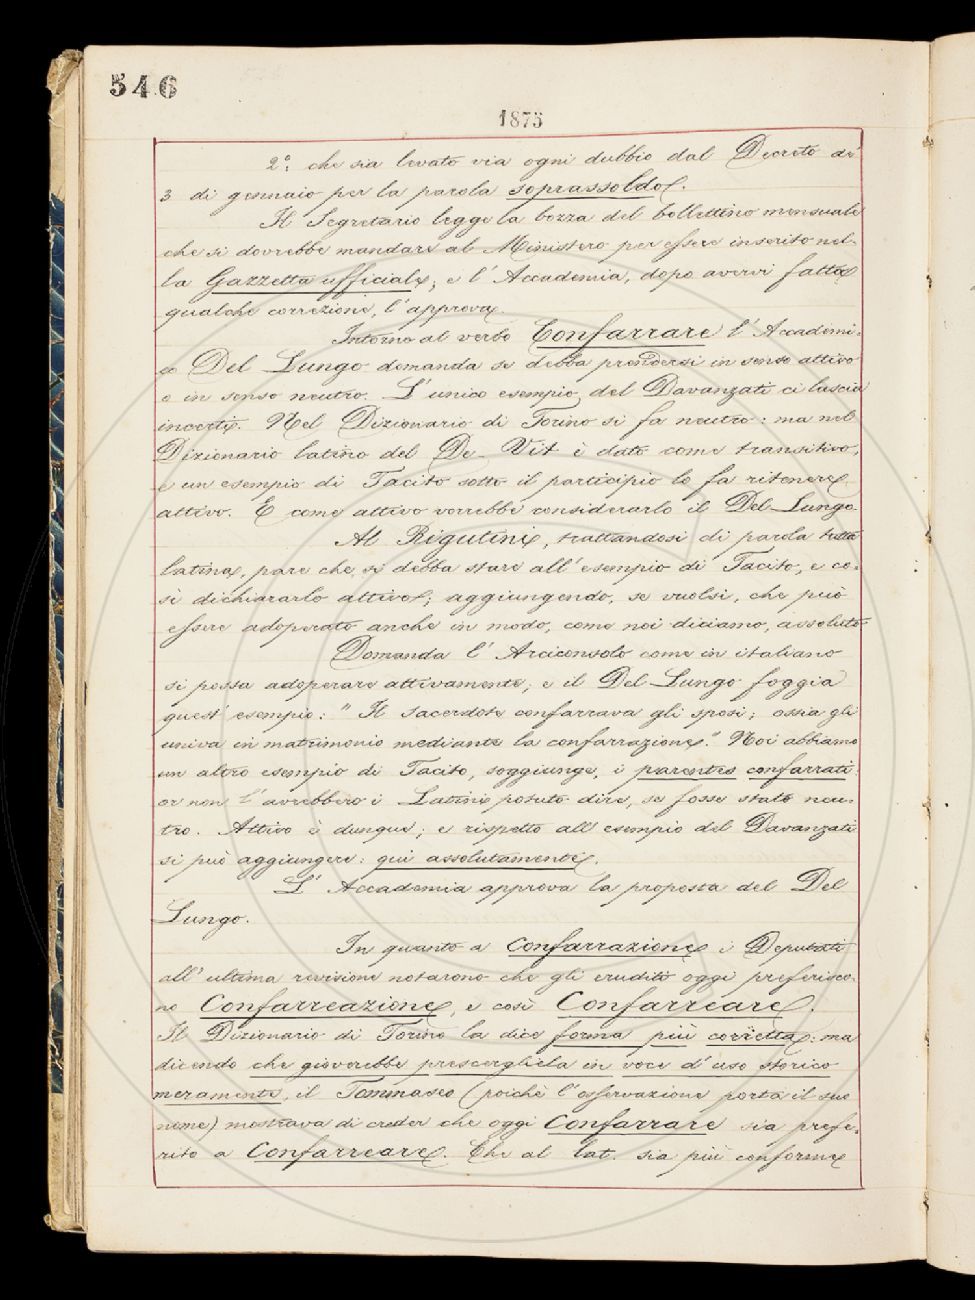 546
1875
2º: che sia levato via ogni dubbio dal Decreto de'
3 di gennaio per la parola soprassoldo.
Il Segretario legge la bozza del bollettino mensuale
che si dovrebbe mandare al Ministero per essere inserito nel-
la Gazzetta ufficiale; e l'Accademia, dopo avervi fatta
qualche correzione, l'approva.
Intorno al verbo Confarrare l'Accademi-
co Del Lungo domanda se debba prendersi in senso attivo
o in senso neutro. L'unico esempio del Davanzati ci lascia
incerti. Nel Dizionario di Torino si fa neutro: ma nel
Dizionario latino del De-Vit è dato come transitivo,
e un esempio di Tacito sotto il participio lo fa ritenere
attivo. E come attivo vorrebbe considerarlo il Del Lungo.
Al Rigutini, trattandosi di parola tutta
latina, pare che si debba stare all'esempio di Tacito, e co-
sì dichiararlo attivo; aggiungendo, se vuolsi, che può
essere adoperato anche in modo, come noi diciamo, assoluto.
Domanda l'Arciconsolo come in italiano
si possa adoperare attivamente; e il Del Lungo foggia
quest'esempio: "Il sacerdote confarrava gli sposi; ossia gli
univa in matrimonio mediante la confarrazione." Noi abbiamo
un altro esempio di Tacito, soggiunge, i parentes confarrati:
or non l'avrebbero i Latini potuto dire, se fosse stato neu-
tro. Attivo è dunque; e rispetto all'esempio del Davanzati
si può aggiungere: qui assolutamente.
L'Accademia approva la proposta del Del
Lungo.
In quanto a Confarrazione i Deputati
all'ultima revisione notarono che gli eruditi oggi preferisco-
no Confarreazione, e così Confarreare.
Il Dizionario di Torino la dice forma più corretta: ma
dicendo che gioverebbe prescerglierla in voce d'uso storico
meramente, il Tommaseo (poichè l'osservazione porta il suo
nome) mostrava di creder che oggi Confarrare sia prefe-
rito a Confarreare. Che al lat. sia più conforme